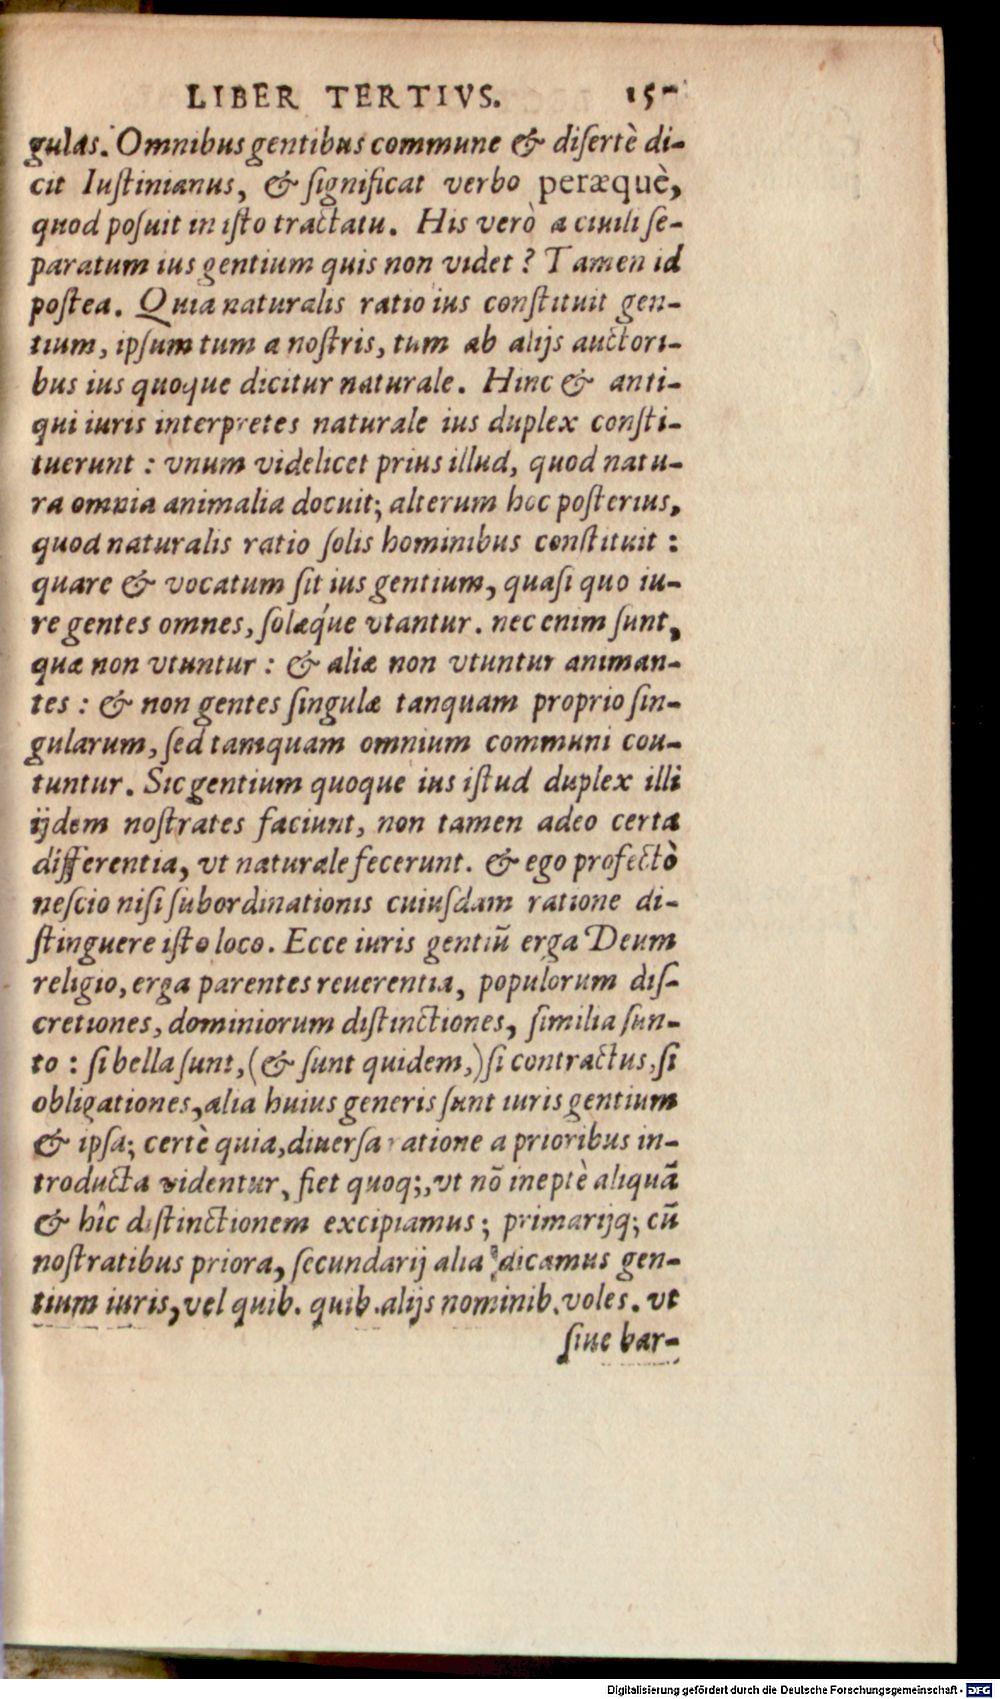 LIBER TERTIVS. 15-
gulas. Omnibus gentibus commune & disertè di-
cit Iustinianus, & significat verbo peræquè,
quod posuit in isto tractatu. His verò a ciuili se-
paratum ius gentium quis non videt? Tamen id
postea. Quia naturalis ratio ius constituit gen-
tium, ipsum tum a nostris, tum ab alijs auctori-
bus ius quoque dicitur naturale. Hinc & anti-
qui iuris interpretes naturale ius duplex consti-
tuerunt: vnum videlicet prius illud, quod natu-
ra omnia animalia docuit; alterum hoc posterius,
quod naturalis ratio solis hominibus constituit:
quare & vocatum sit ius gentium, quasi quo iu-
re gentes omnes, solæq́ue vtantur. nec enim sunt,
quæ non vtuntur: & aliæ non vtuntur animan-
tes: & non gentes singulæ tanquam proprio sin-
gularum, sed tamquam omnium communi cou-
tuntur. Sic gentium quoque ius istud duplex illi
ijdem nostrates faciunt, non tamen adeo certa
differentia, vt naturale fecerunt. & ego profectò
nescio nisi subordinationis cuiusdam ratione di-
stinguere isto loco. Ecce iuris gentiũ erga Deum
religio, erga parentes reuerentia, populorum dis-
cretiones, dominiorum distinctiones, similia sun-
to: si bella sunt, (& sunt quidem,) si contractus, si
obligationes, alia huius generis sunt iuris gentium
& ipsa; certè quia, diuersa ratione a prioribus in-
troducta videntur, fiet quoq;, vt nõ ineptè aliquã
& hîc distinctionem excipiamus; primarijq; cũ
nostratibus priora, secundarij alia dicamus gen-
tium iuris, vel quib. quib. alijs nominib. voles. vt
siue bar-
Digitalisierung gefördert durch die Deutsche Forschungsgemeinschaft - DFG